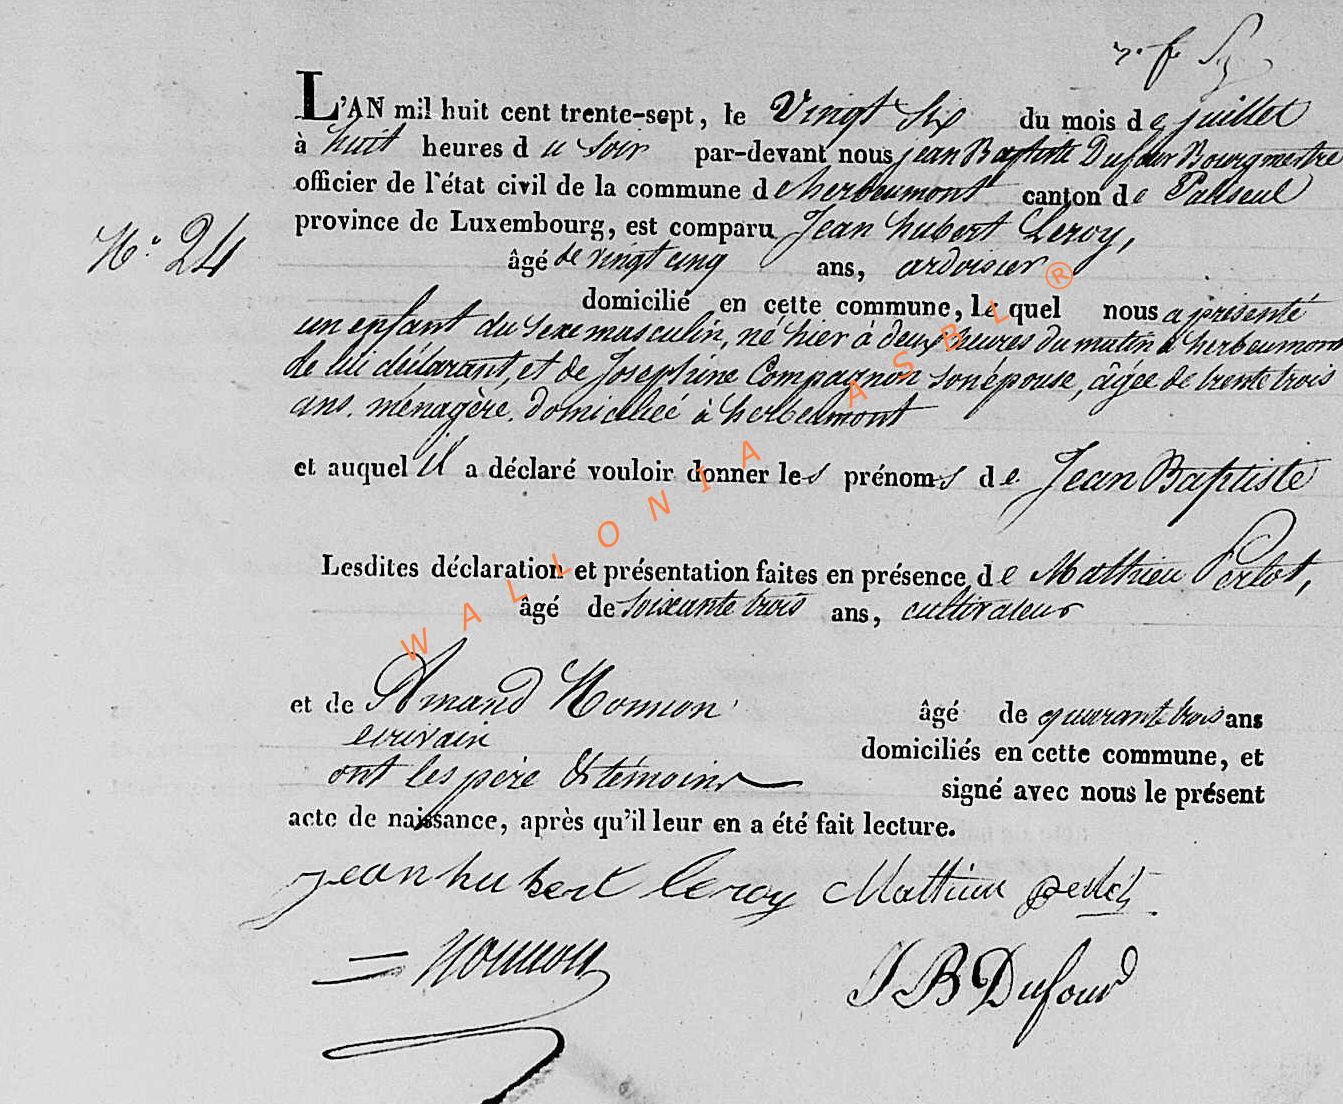 L'AN mil huit cent trente-sept, le Vingt Six du mois de juillet
à huit heures du soir par-devant nous jean Baptiste Dufour Bourgmestre
officier de l'état civil de la commune de herbeumont canton de Paliseul
N.° 24
province de Luxembourg, est comparu Jean hubert Leroy,
âgé de vingt cinq ans, ardoisier
domicilié en cette commune, lequel nous a présenté
un enfant du sexe masculin, né hier à deux heures du matin à herbeumont
de lui déclarant, et de Josephine Compagnon son épouse, âgée de trente trois
ans, ménagère, domiciliée à herbeumont
et auquel il a déclaré vouloir donner les prénoms de Jean Baptiste
Lesdites déclaration et présentation faites en présence de Mathieu Perlot,
âgé de soixante trois ans, cultivateur
et de Amand Nonnon âgé de quarante trois ans
écrivain domiciliés en cette commune, et
ont les père & témoins signé avec nous le présent
acte de naissance, après qu'il leur en a été fait lecture.
jean hubert leroy Mathieu perlot
Nonnon J B Dufour
WALLONIA ASBL ®